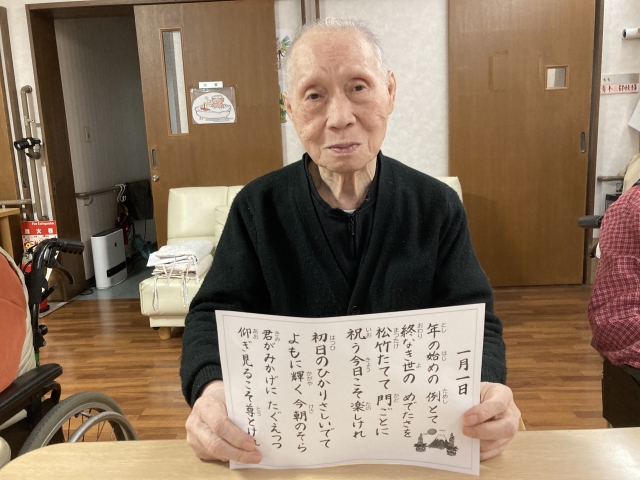 一月一日
年の始めの 例とて
終なき世の めでたさを
松竹たてて 門ごとに
祝う今日こそ 楽しけれ
初日のひかり さしいでて
よもに輝く 今朝のそら
君がみかげに たぐえつつ
仰ぎ見るこそ 尊とけれ